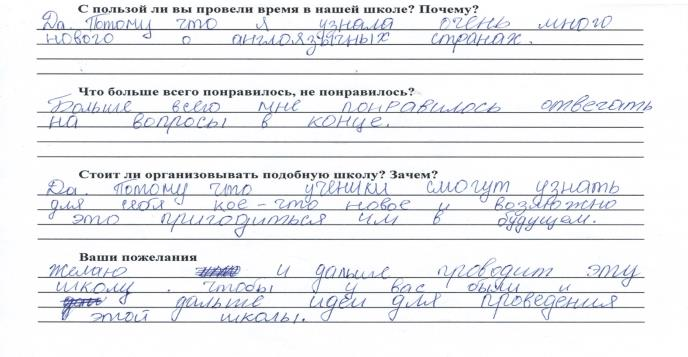 С пользой ли вы провели время в нашей школе? Почему?
Да. Потому что я узнала очень много
нового о англоязычных странах.
Что больше всего понравилось, не понравилось?
Больше всего мне понравилось отвечать
на вопросы в конце.
Стоит ли организовывать подобную школу? Зачем?
Да. Потому что ученики смогут узнать
для себя кое-что новое и возможно
это пригодиться им в будущем.
Ваши пожелания
Желаю и дальше проводит эту
школу. чтобы у вас были и
дальше идеи для проведения
этой школы.